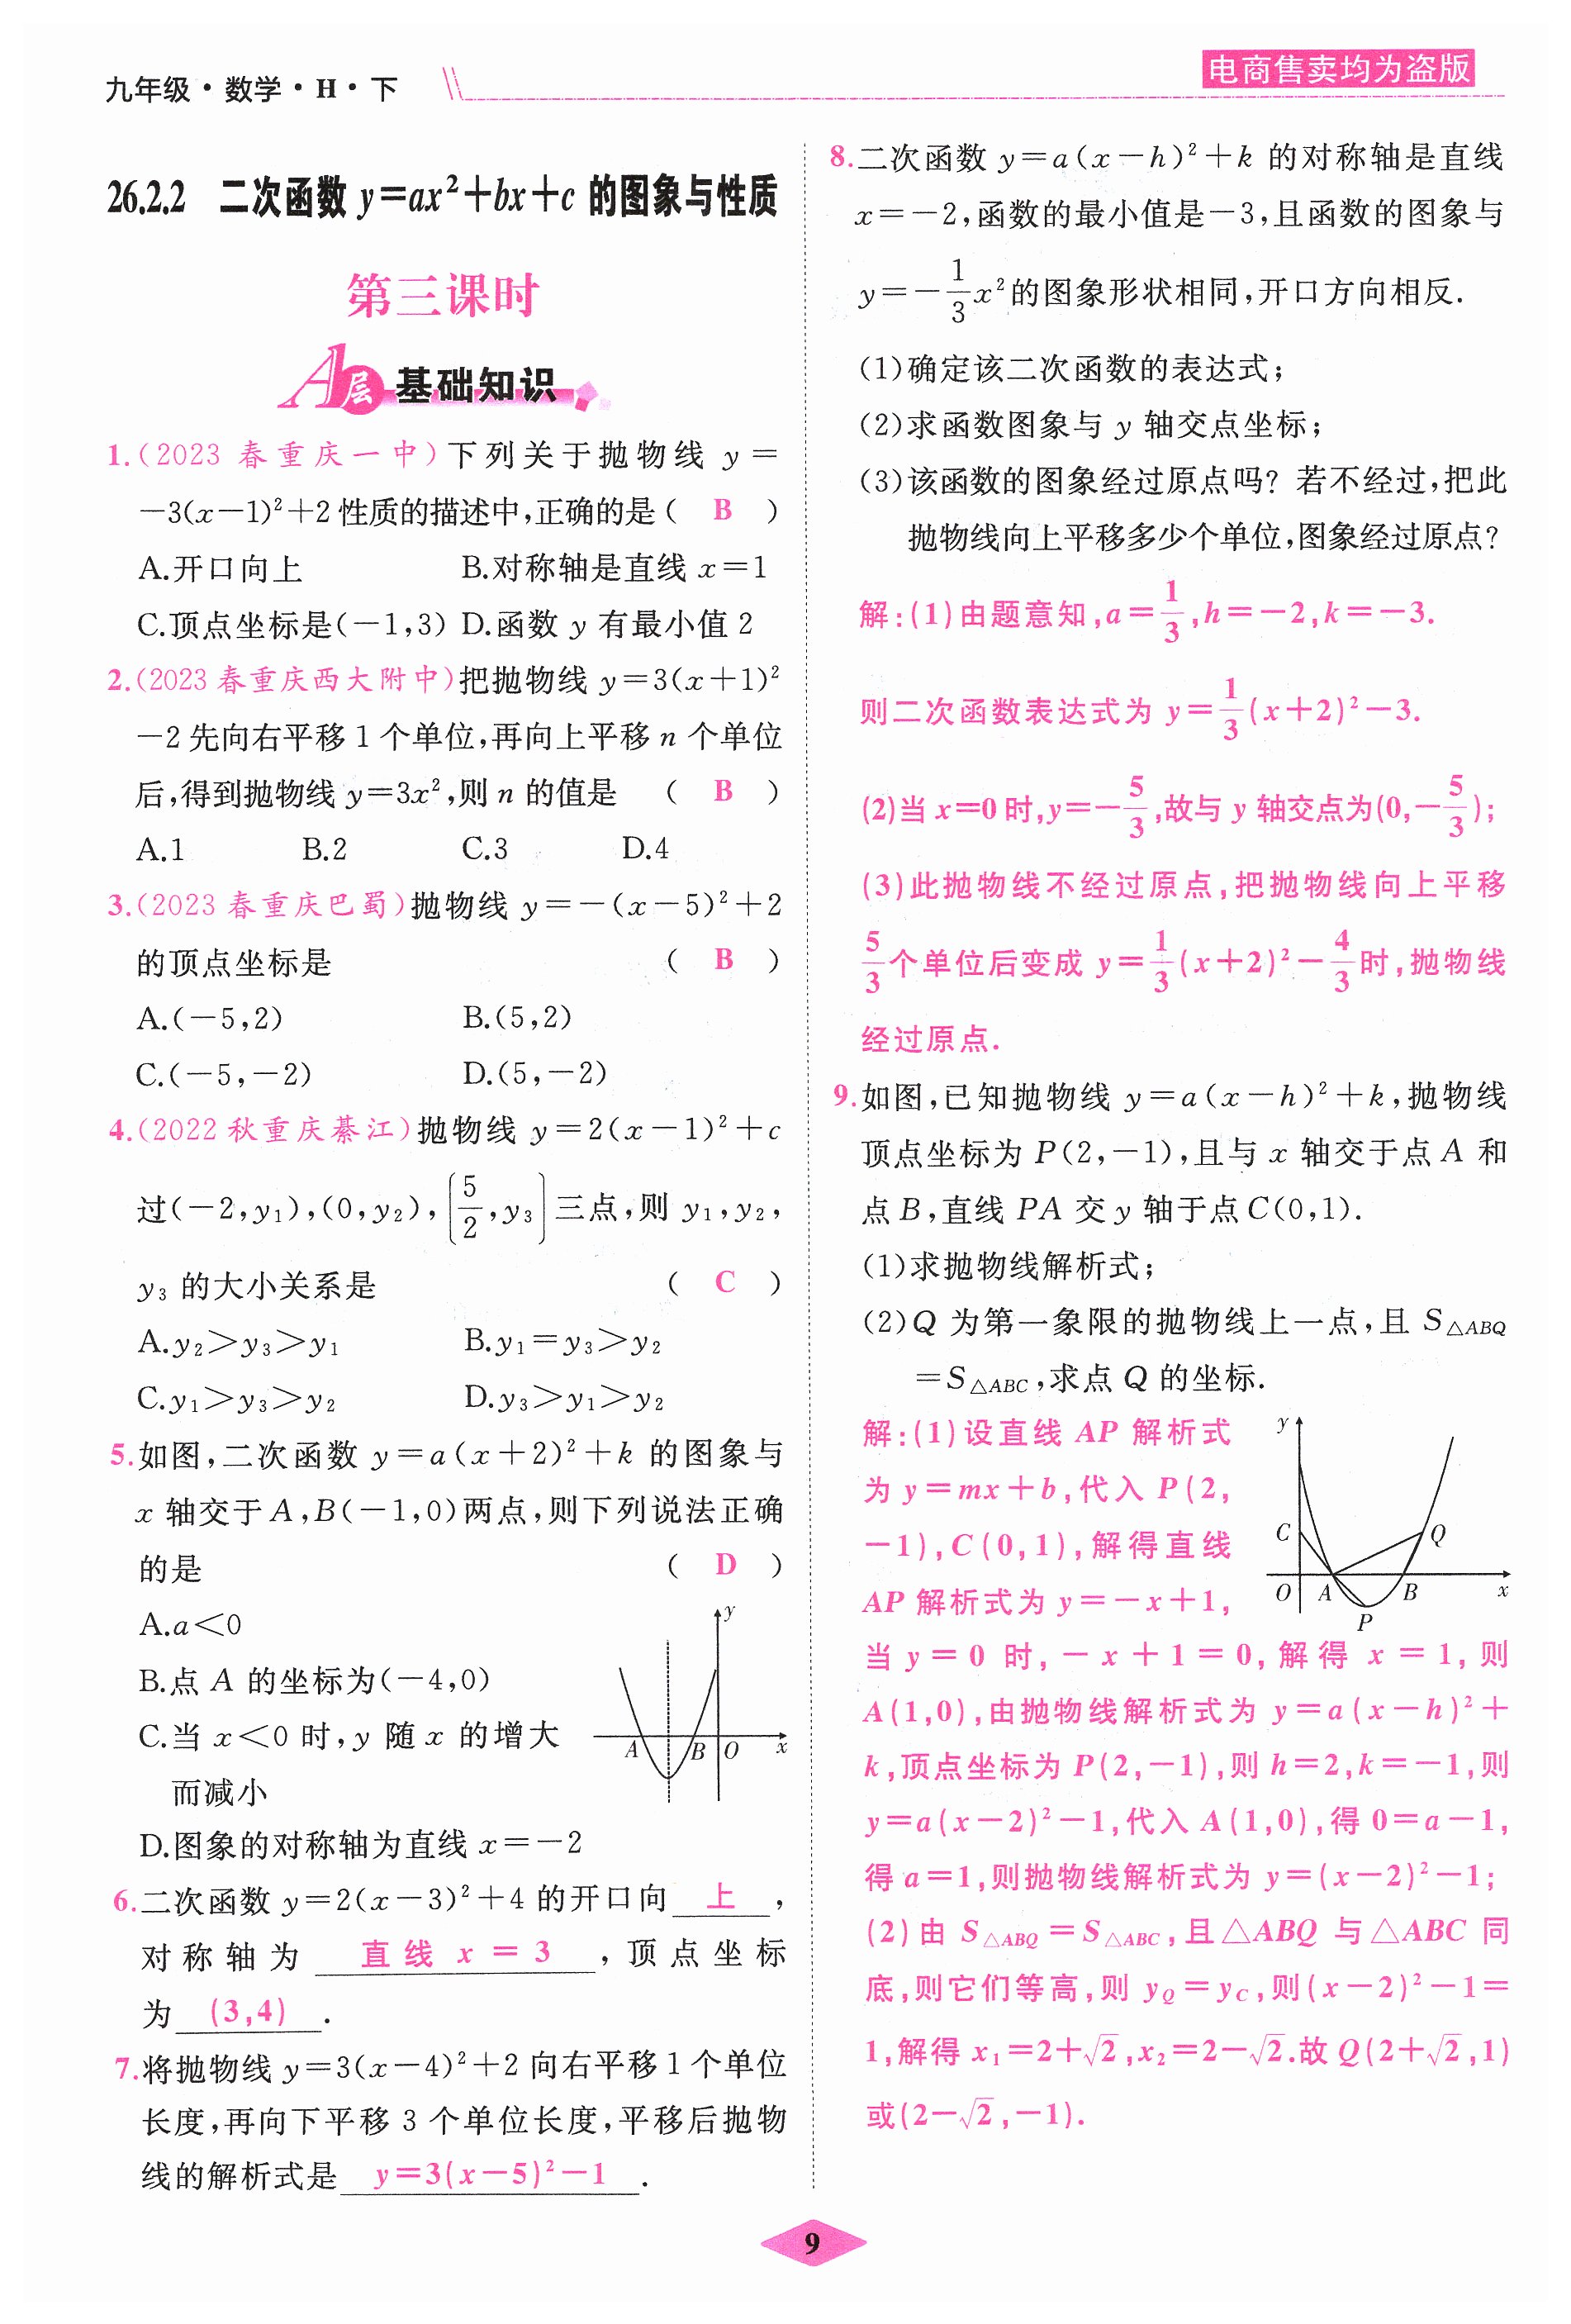 九年级·数学·H·下
电商售卖均为盗版
26.2.2 二次函数 y=ax²+bx+c 的图象与性质
第三课时
A层 基础知识
1.(2023 春重庆一中)下列关于抛物线 y=
-3(x-1)²+2性质的描述中,正确的是( B )
A.开口向上 B.对称轴是直线 x=1
C.顶点坐标是(-1,3) D.函数 y 有最小值 2
2.(2023 春重庆西大附中)把抛物线 y=3(x+1)²
-2 先向右平移 1 个单位,再向上平移 n 个单位
后,得到抛物线 y=3x²,则 n 的值是 ( B )
A.1 B.2 C.3 D.4
3.(2023 春重庆巴蜀)抛物线 y=-(x-5)²+2
的顶点坐标是 ( B )
A.(-5,2) B.(5,2)
C.(-5,-2) D.(5,-2)
4.(2022 秋重庆綦江)抛物线 y=2(x-1)²+c
过(-2,y₁),(0,y₂),(5/2,y₃)三点,则 y₁,y₂,
y₃ 的大小关系是 ( C )
A.y₂>y₃>y₁ B.y₁=y₃>y₂
C.y₁>y₃>y₂ D.y₃>y₁>y₂
5.如图,二次函数 y=a(x+2)²+k 的图象与
x 轴交于 A,B(-1,0)两点,则下列说法正确
的是 ( D )
A.a<0
B.点 A 的坐标为(-4,0)
C.当 x<0 时,y 随 x 的增大
而减小
D.图象的对称轴为直线 x=-2
y
A B O x
6.二次函数 y=2(x-3)²+4 的开口向 上 ,
对称轴为 直线 x=3 ,顶点坐标
为 (3,4) .
7.将抛物线 y=3(x-4)²+2 向右平移 1 个单位
长度,再向下平移 3 个单位长度,平移后抛物
线的解析式是 y=3(x-5)²-1 .
8.二次函数 y=a(x-h)²+k 的对称轴是直线
x=-2,函数的最小值是-3,且函数的图象与
y=-1/3x²的图象形状相同,开口方向相反.
(1)确定该二次函数的表达式;
(2)求函数图象与 y 轴交点坐标;
(3)该函数的图象经过原点吗?若不经过,把此
抛物线向上平移多少个单位,图象经过原点?
解:(1)由题意知,a=1/3,h=-2,k=-3.
则二次函数表达式为 y=1/3(x+2)²-3.
(2)当 x=0 时,y=-5/3,故与 y 轴交点为(0,-5/3);
(3)此抛物线不经过原点,把抛物线向上平移
5/3个单位后变成 y=1/3(x+2)²-4/3时,抛物线
经过原点.
9.如图,已知抛物线 y=a(x-h)²+k,抛物线
顶点坐标为 P(2,-1),且与 x 轴交于点 A 和
点 B,直线 PA 交 y 轴于点 C(0,1).
(1)求抛物线解析式;
(2)Q 为第一象限的抛物线上一点,且 S△ABQ
=S△ABC,求点 Q 的坐标.
解:(1)设直线 AP 解析式
为 y=mx+b,代入 P(2,
-1),C(0,1),解得直线
AP 解析式为 y=-x+1,
y
C Q
O A B x
P
当 y=0 时,-x+1=0,解得 x=1,则
A(1,0),由抛物线解析式为 y=a(x-h)²+
k,顶点坐标为 P(2,-1),则 h=2,k=-1,则
y=a(x-2)²-1,代入 A(1,0),得 0=a-1,
得 a=1,则抛物线解析式为 y=(x-2)²-1;
(2)由 S△ABQ=S△ABC,且△ABQ 与△ABC 同
底,则它们等高,则 yQ=yC,则(x-2)²-1=
1,解得 x₁=2+√2,x₂=2-√2.故 Q(2+√2,1)
或(2-√2,-1).
9